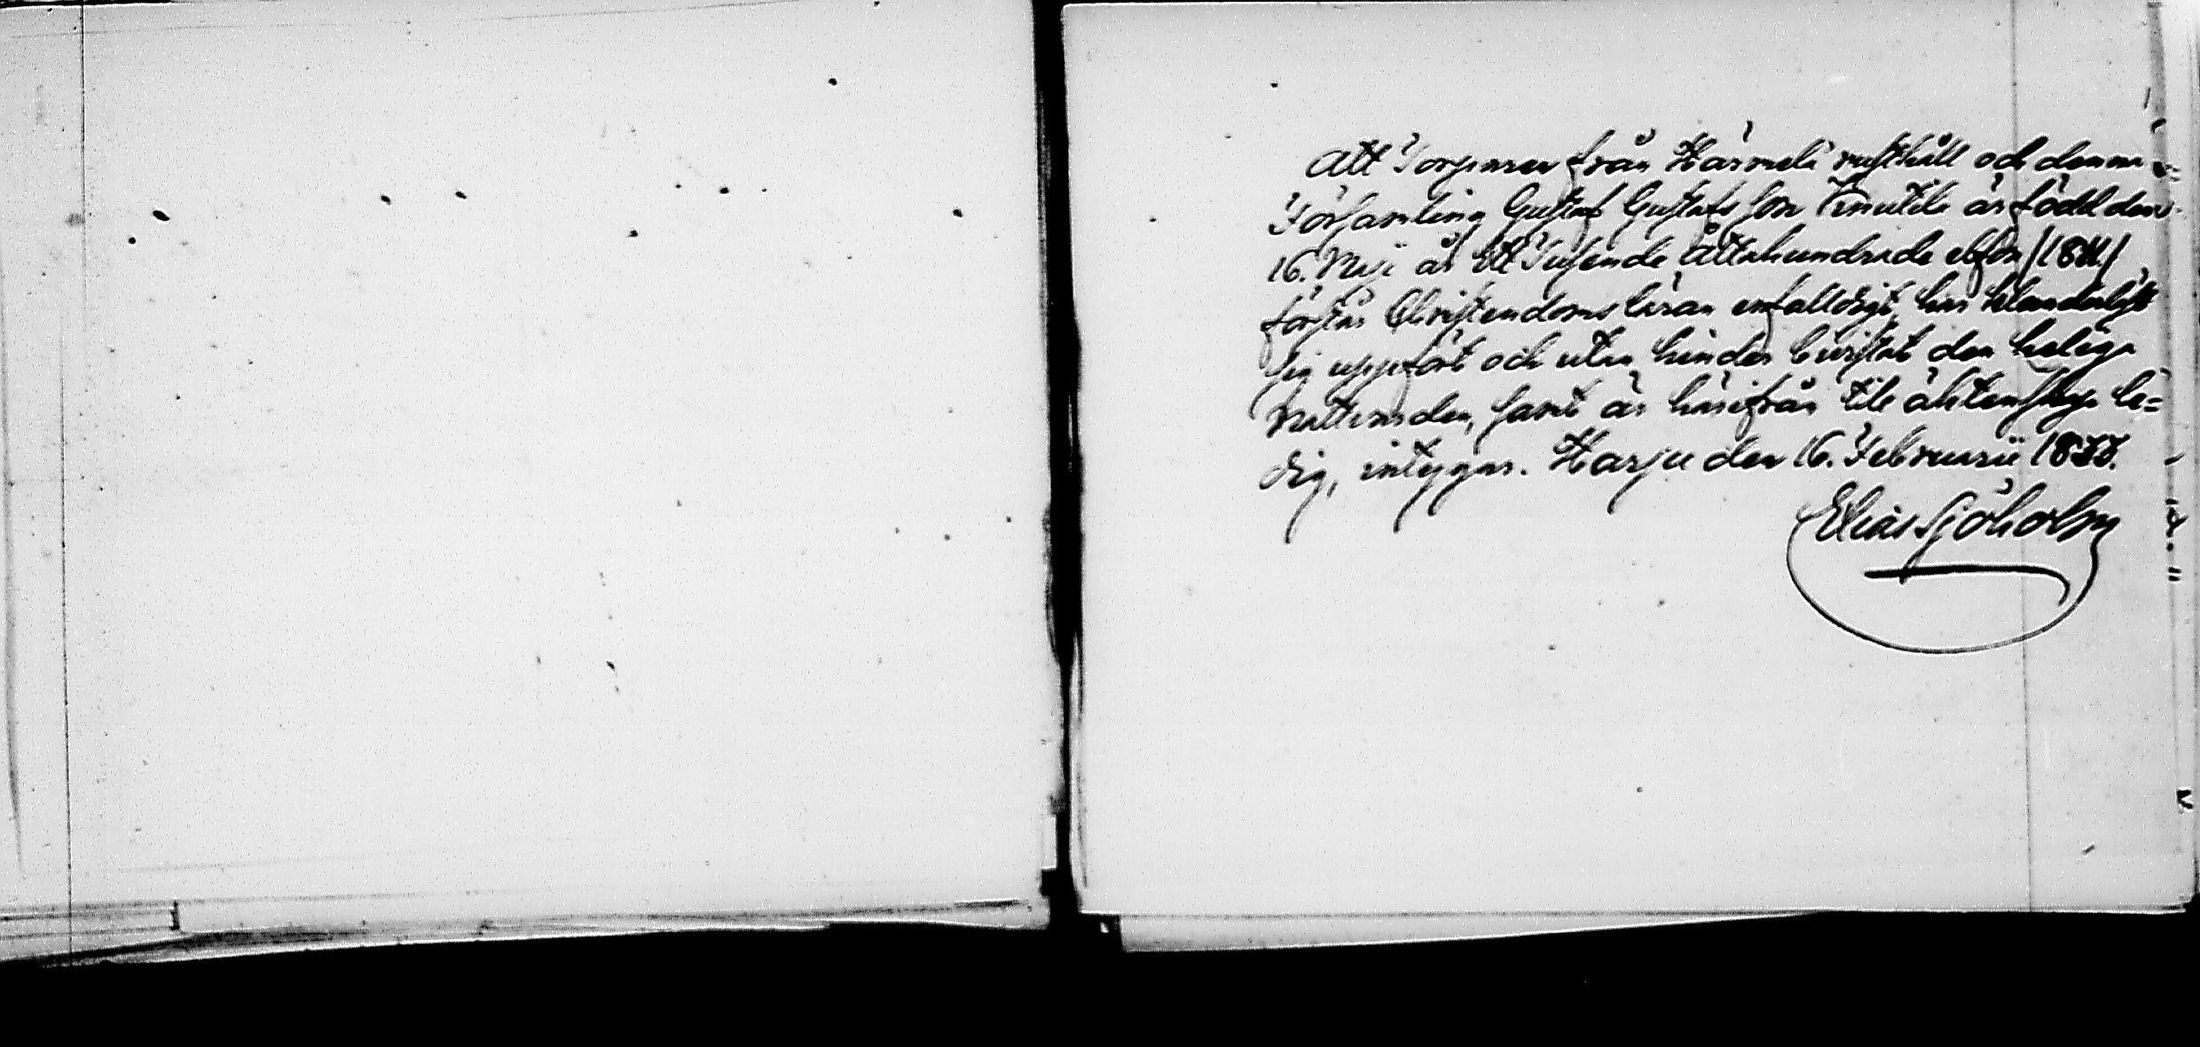 Att Torparen från Härmelä rusthåll och denna
Församling Gustaf Gustafs son Knutila är född den
16. Maji år Ett Tusende Åttahundrade elfva /1811/
förstår Christendoms läran enfalldigt, har klanderlöst
sig uppfört och utan hinder bevistat den heliga
Nattvarden, samt är härifrån till äktenskap le=
dig, intygar. Harju den 16. Februarii 1833.
Elias Sjöholm